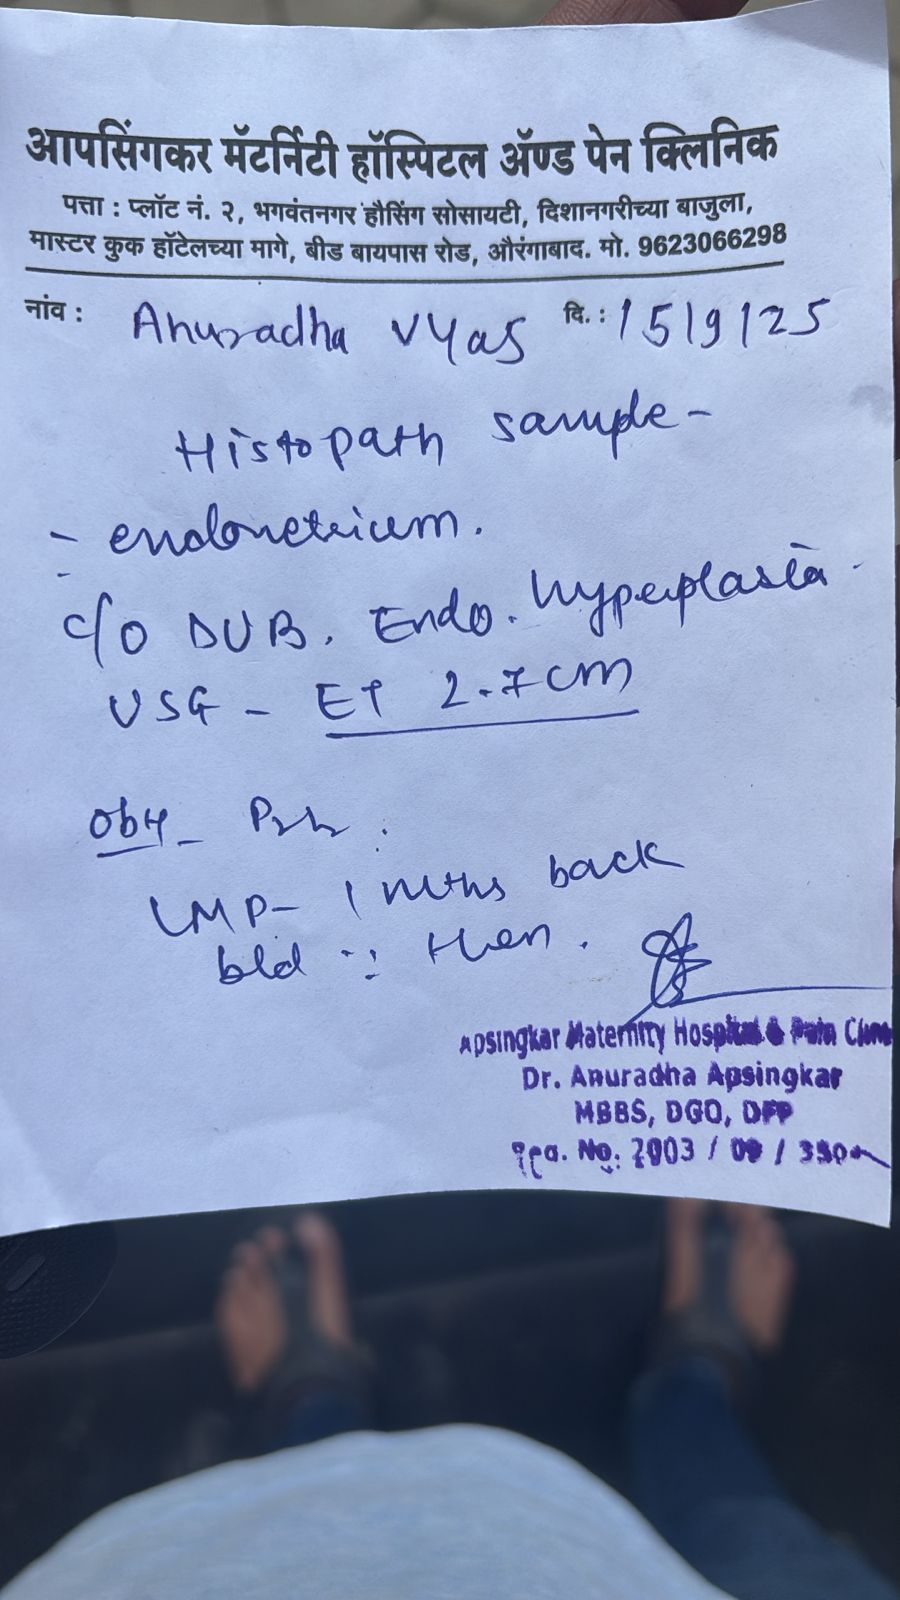 आपसिंगकर मॅटर्निटी हॉस्पिटल ॲण्ड पेन क्लिनिक
पत्ता : प्लॉट नं. २, भगवंतनगर हौसिंग सोसायटी, दिशानगरीच्या बाजुला,
मास्टर कुक हॉटेलच्या मागे, बीड बायपास रोड, औरंगाबाद. मो. 9623066298
नांव : Anuradha Vyas दि. : 15/9/25
Histopath sample -
- endometrium.
c/o DUB. Endo. hyperplasia.
USG - ET 2.7cm
Obh -
LMP - 1 mths back
bld since then.
Apsingkar Maternity Hospital & Pain Clinic
Dr. Anuradha Apsingkar
MBBS, DGO, DFP
Reg. No. 2003 / 09 /